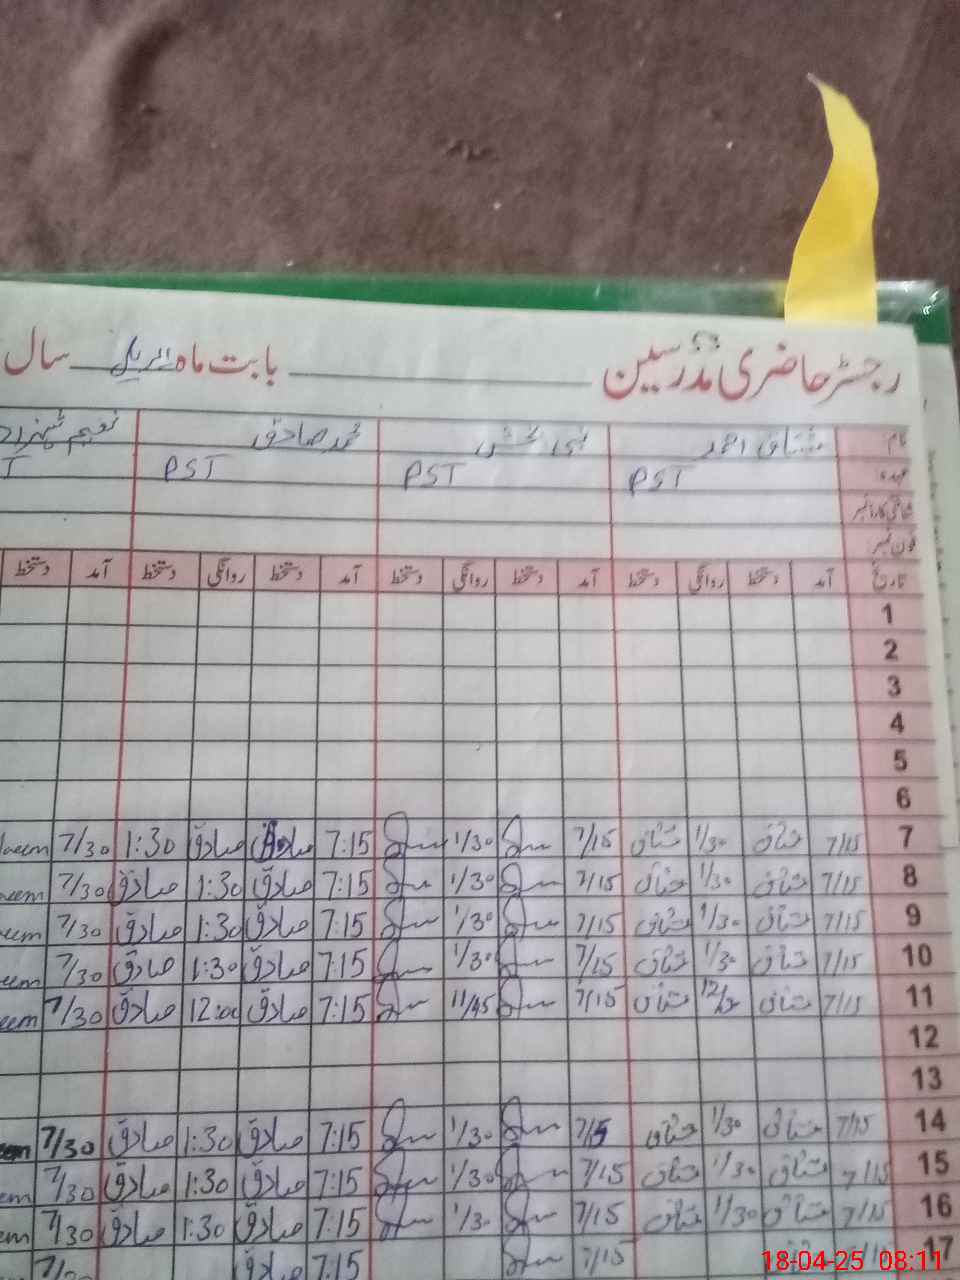 رجسٹر حاضری مدرسین بابت ماہ اپریل سال
نام مشتاق احمد نبی بخش محمد صادق نعیم شہزاد
عہدہ PST PST PST T
شناختی کارڈ نمبر
فون نمبر
تاریخ آمد دستخط روانگی دستخط آمد دستخط روانگی دستخط آمد دستخط روانگی دستخط آمد دستخط
1
2
3
4
5
6
7 7/15 مشتاق 1/30 مشتاق 7/15 1/30 7:15 صادق صادق 1:30 7/30 Naeem
8 7/15 مشتاق 1/30 مشتاق 7/15 1/30 7:15 صادق 1:30 صادق 7/30 aeem
9 7/15 مشتاق 1/30 مشتاق 7/15 1/30 7:15 صادق 1:30 صادق 7/30 eem
10 7/15 مشتاق 1/30 مشتاق 7/15 1/30 7:15 صادق 1:30 صادق 7/30 eem
11 7/15 مشتاق مشتاق 7/15 11/45 7:15 صادق 12:00 صادق 7/30 eem
12
13
14 7/15 مشتاق 1/30 مشتاق 7/15 1/30 7:15 صادق 1:30 صادق 7/30 eem
15 7/15 مشتاق 1/30 مشتاق 7/15 1/30 7:15 صادق 1:30 صادق 7/30 em
16 7/15 مشتاق 1/30 مشتاق 7/15 1/30 7:15 صادق 1:30 صادق 7/30 em
17 7/15 7:15 صادق 7/30
18-04-25 08:11